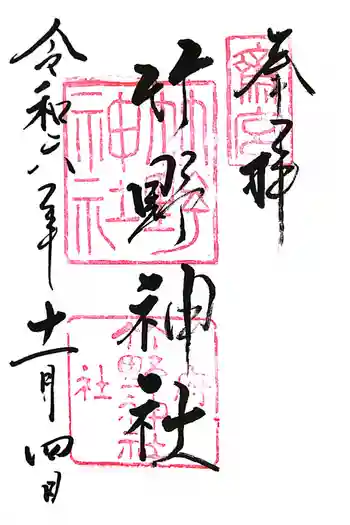 奉拝
齋宮
竹野神社
竹野神社
府社
竹野神社
令和六年
十一月四日